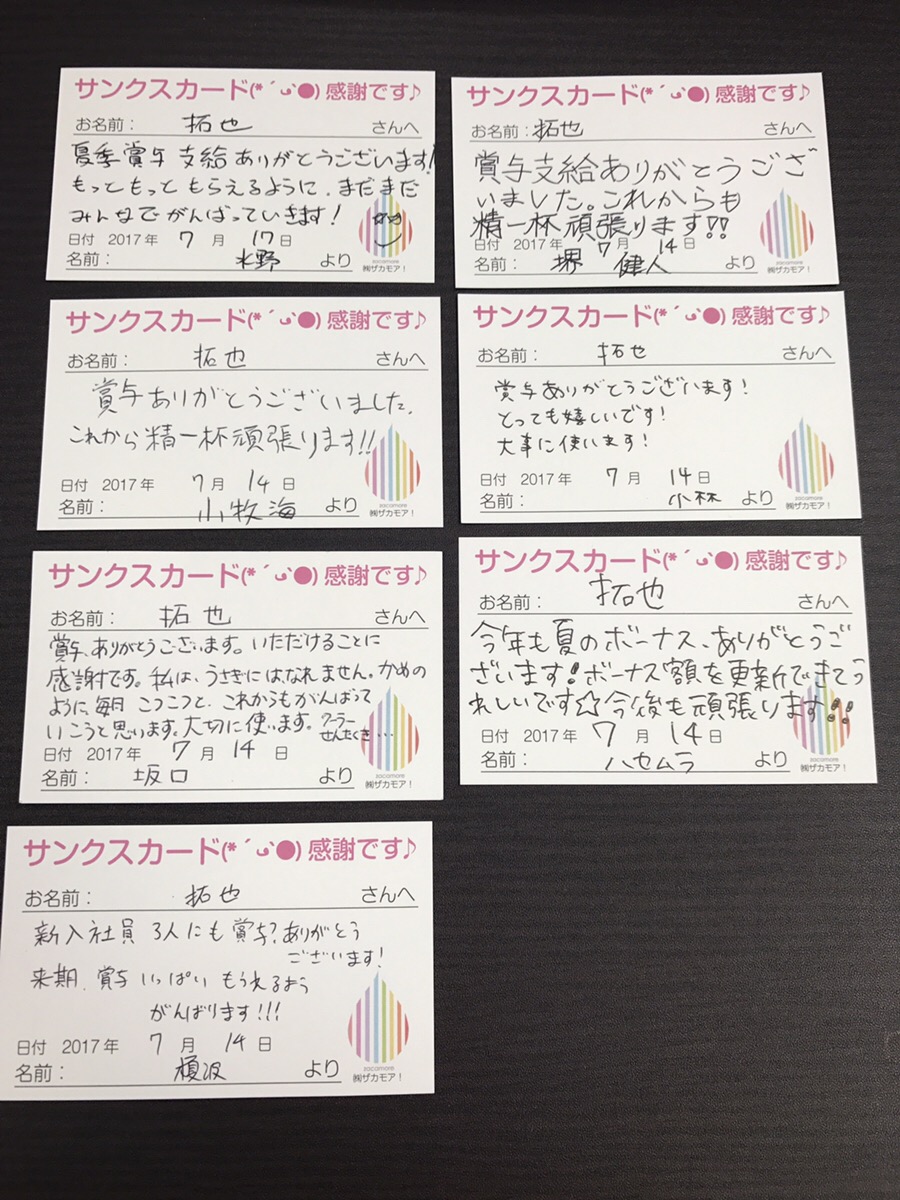 サンクスカード(*´ᴗ`●)感謝です♪
お名前： 拓也 さんへ
夏季賞与 支給 ありがとうございます!
もっともっと もらえるように、まだまだ
みんなでがんばっていきます!
日付 2017年 7月 17日
名前： 水野 より
zacomore
㈱ザカモア!
サンクスカード(*´ᴗ`●)感謝です♪
お名前： 拓也 さんへ
賞与支給ありがとうござ
いました。これからも
精一杯頑張ります!!
日付 2017年 7月 14日
名前： 堺 健人 より
zacomore
㈱ザカモア!
サンクスカード(*´ᴗ`●)感謝です♪
お名前： 拓也 さんへ
賞与ありがとうございました。
これから精一杯頑張ります!!
日付 2017年 7月 14日
名前： 小牧海 より
zacomore
㈱ザカモア!
サンクスカード(*´ᴗ`●)感謝です♪
お名前： 拓也 さんへ
賞与ありがとうございます!
とっても嬉しいです!
大事に使います!
日付 2017年 7月 14日
名前： 小林 より
zacomore
㈱ザカモア!
サンクスカード(*´ᴗ`●)感謝です♪
お名前： 拓也 さんへ
賞与、ありがとうございます。いただけることに
感謝です。私は、うさぎにはなれません。かめの
ように、毎日 こつこつと、これからもがんばって
いこうと思います。大切に使います。クーラー
せんたくき…
日付 2017年 7月 14日
名前： 坂口 より
zacomore
㈱ザカモア!
サンクスカード(*´ᴗ`●)感謝です♪
お名前： 拓也 さんへ
今年も夏のボーナス、ありがとうご
ざいます!ボーナス額を更新できてう
れしいです☆今後も頑張ります!!
日付 2017年 7月 14日
名前： ハセムラ より
zacomore
㈱ザカモア!
サンクスカード(*´ᴗ`●)感謝です♪
お名前： 拓也 さんへ
新入社員 3人にも 賞与?ありがとう
ございます!
来期、賞与 いっぱい もらえるよう
がんばります!!!
日付 2017年 7月 14日
名前： より
zacomore
㈱ザカモア!